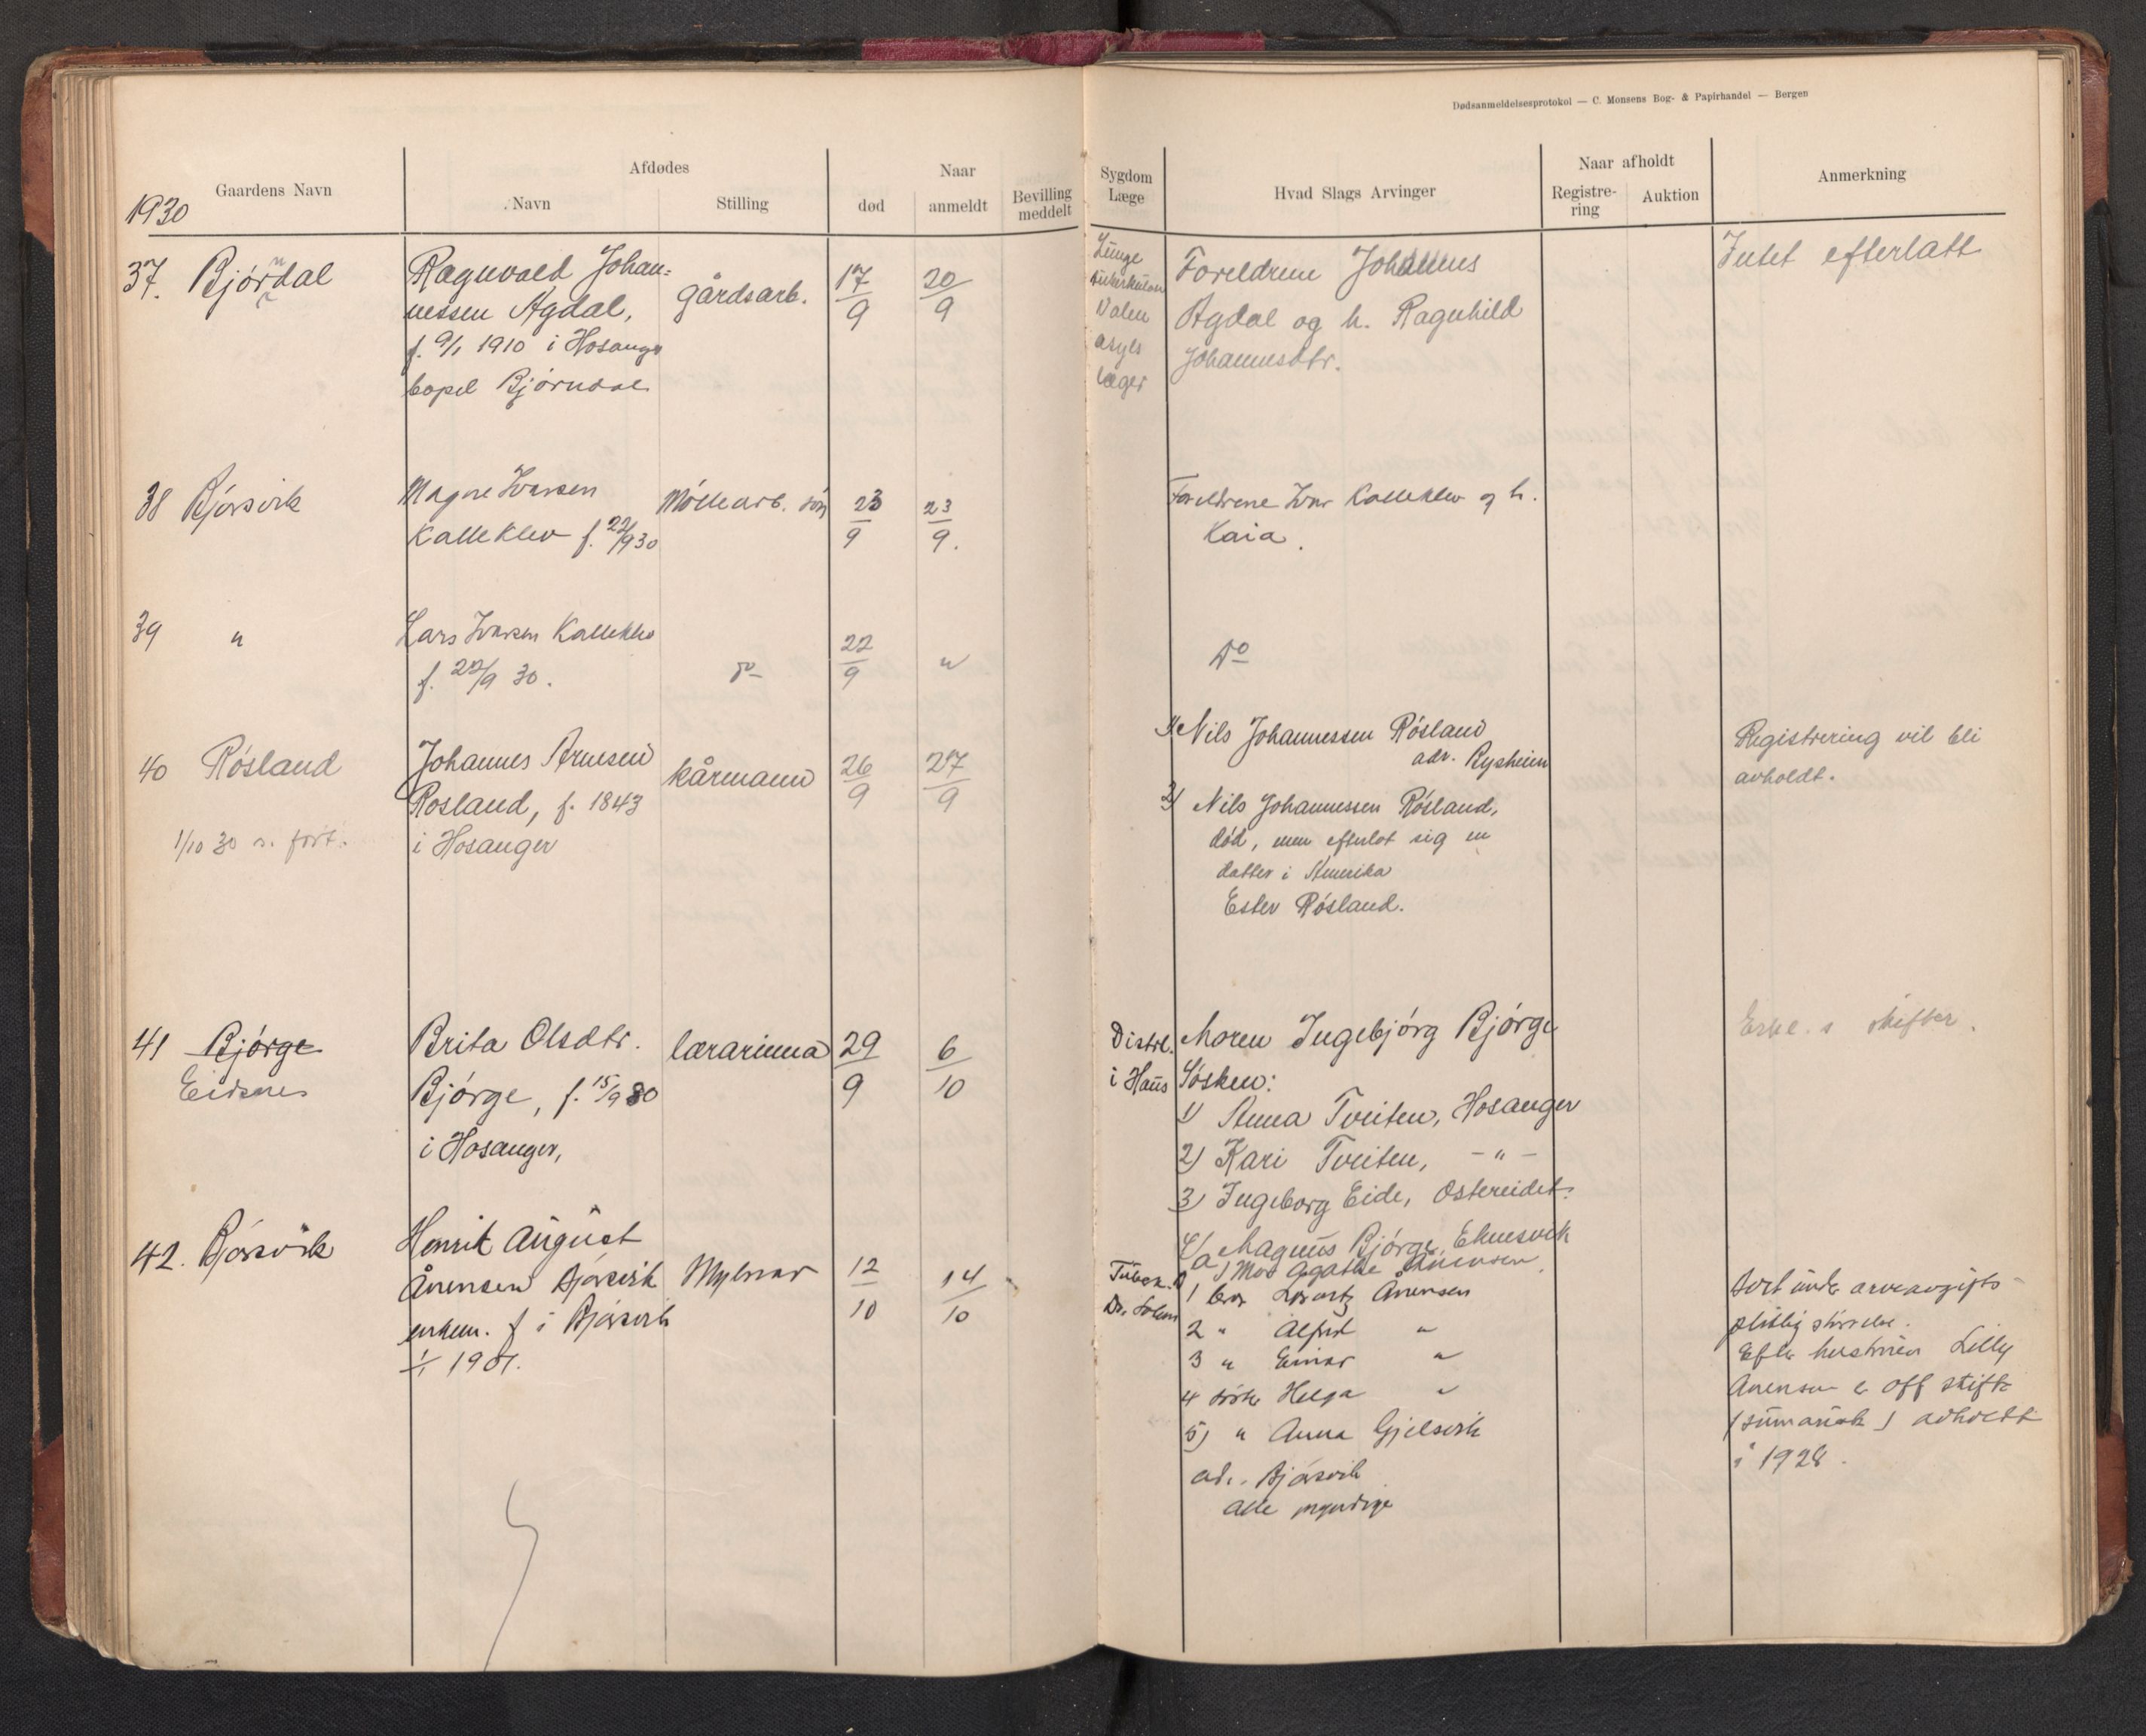 Dødsanmeldelsesprotokol — C. Monsens Bog- & Papirhandel — Bergen
1930
Gaardens Navn
Afdødes
Navn
Stilling
Naar
død
anmeldt
Bevilling
meddelt
Sygdom
Læge
Hvad Slags Arvinger
Naar afholdt
Registre-
ring
Auktion
Anmerkning
37. Bjørndal
Ragnvald Johan-
nessen Agdal,
f. 9/1 1910 i Hosanger
bopel Bjørndal
gårdsarb.
17/9
20/9
Lunge
tuberkulose
Valen
asyls
læger
Foreldrene Johannes
Agdal og h. Ragnhild
Johannesdtr.
Intet efterlatt
38 Bjørsvik
Magne Ivarsen
Kalleklev f. 22/9 30
Møllearb. søn
23/9
23/9.
Foreldrene Ivar Kalleklev og h.
Kaia.
39 "
Lars Ivarsen Kalleklev
f. 22/9 30.
do
22/9
"
Do
40 Røsland
1/10 30 s. fort.
Johannes Arnesen
Rosland, f. 1843
i Hosanger
kårmann
26/9
27/9
1) Nils Johannessen Røsland
adr. Rysheim
2) Nils Johannessen Røsland,
død, men efterlot sig en
datter i Amerika
Ester Røsland.
Registrering vil bli
avholdt.
41 Bjørge
Eidsnes
Brita Olsdtr.
Bjørge, f. 15/9 80
i Hosanger,
lærarinna
29/9
6/10
Distrl.
i Haus
Moren Ingebjørg Bjørge
Søsken:
1) Anna Tveiten, Hosanger
2) Kari Tveiten, - " -
3) Ingeborg Eide, Ostereidet.
4) Magnus Bjørge, Eknesvik
Erkl. s skifter.
42. Bjørsvik
Henrik August
Ånensen Bjørsvik
enkem. f i Bjørsvik
1/1 1901.
Mylnar
12/10
14/10
Tuberk.
Dr. Solem
a) Mor Agathe Ånensen
1 bror Lorentz Ånensen
2 " Alfred "
3 " Einar "
4 søster Helga "
5) " Anna Gjelsvik
adr. Bjørsvik
alle myndige
Bort under arveavgifts-
pliktig størrelse.
Efter hustruen Lilly
Anensen e off skifte
(sumarisk) avholdt
i 1928.